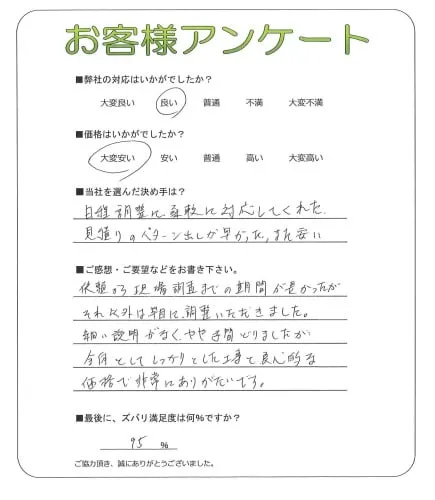 お客様アンケート
■弊社の対応はいかがでしたか?
大変良い 良い 普通 不満 大変不満
■価格はいかがでしたか?
大変安い 安い 普通 高い 大変高い
■当社を選んだ決め手は?
日程調整に柔軟に対応してくれた。
見積りのパターン出しが早かった。また安い
■ご感想・ご要望などをお書き下さい。
依頼から現場調査までの期間が長かったが
それ以外は早目に調整いただきました。
細い説明がなく、やや手間どりましたが
全体としてしっかりとした工事と良心的な
価格で非常にありがたいです。
■最後に、ズバリ満足度は何%ですか?
95 %
ご協力頂き、誠にありがとうございました。